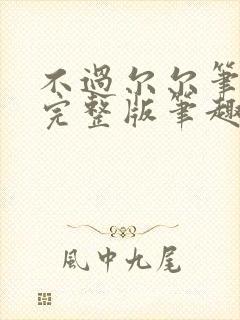 不過尔尔筆
完整版筆趣
風中九尾